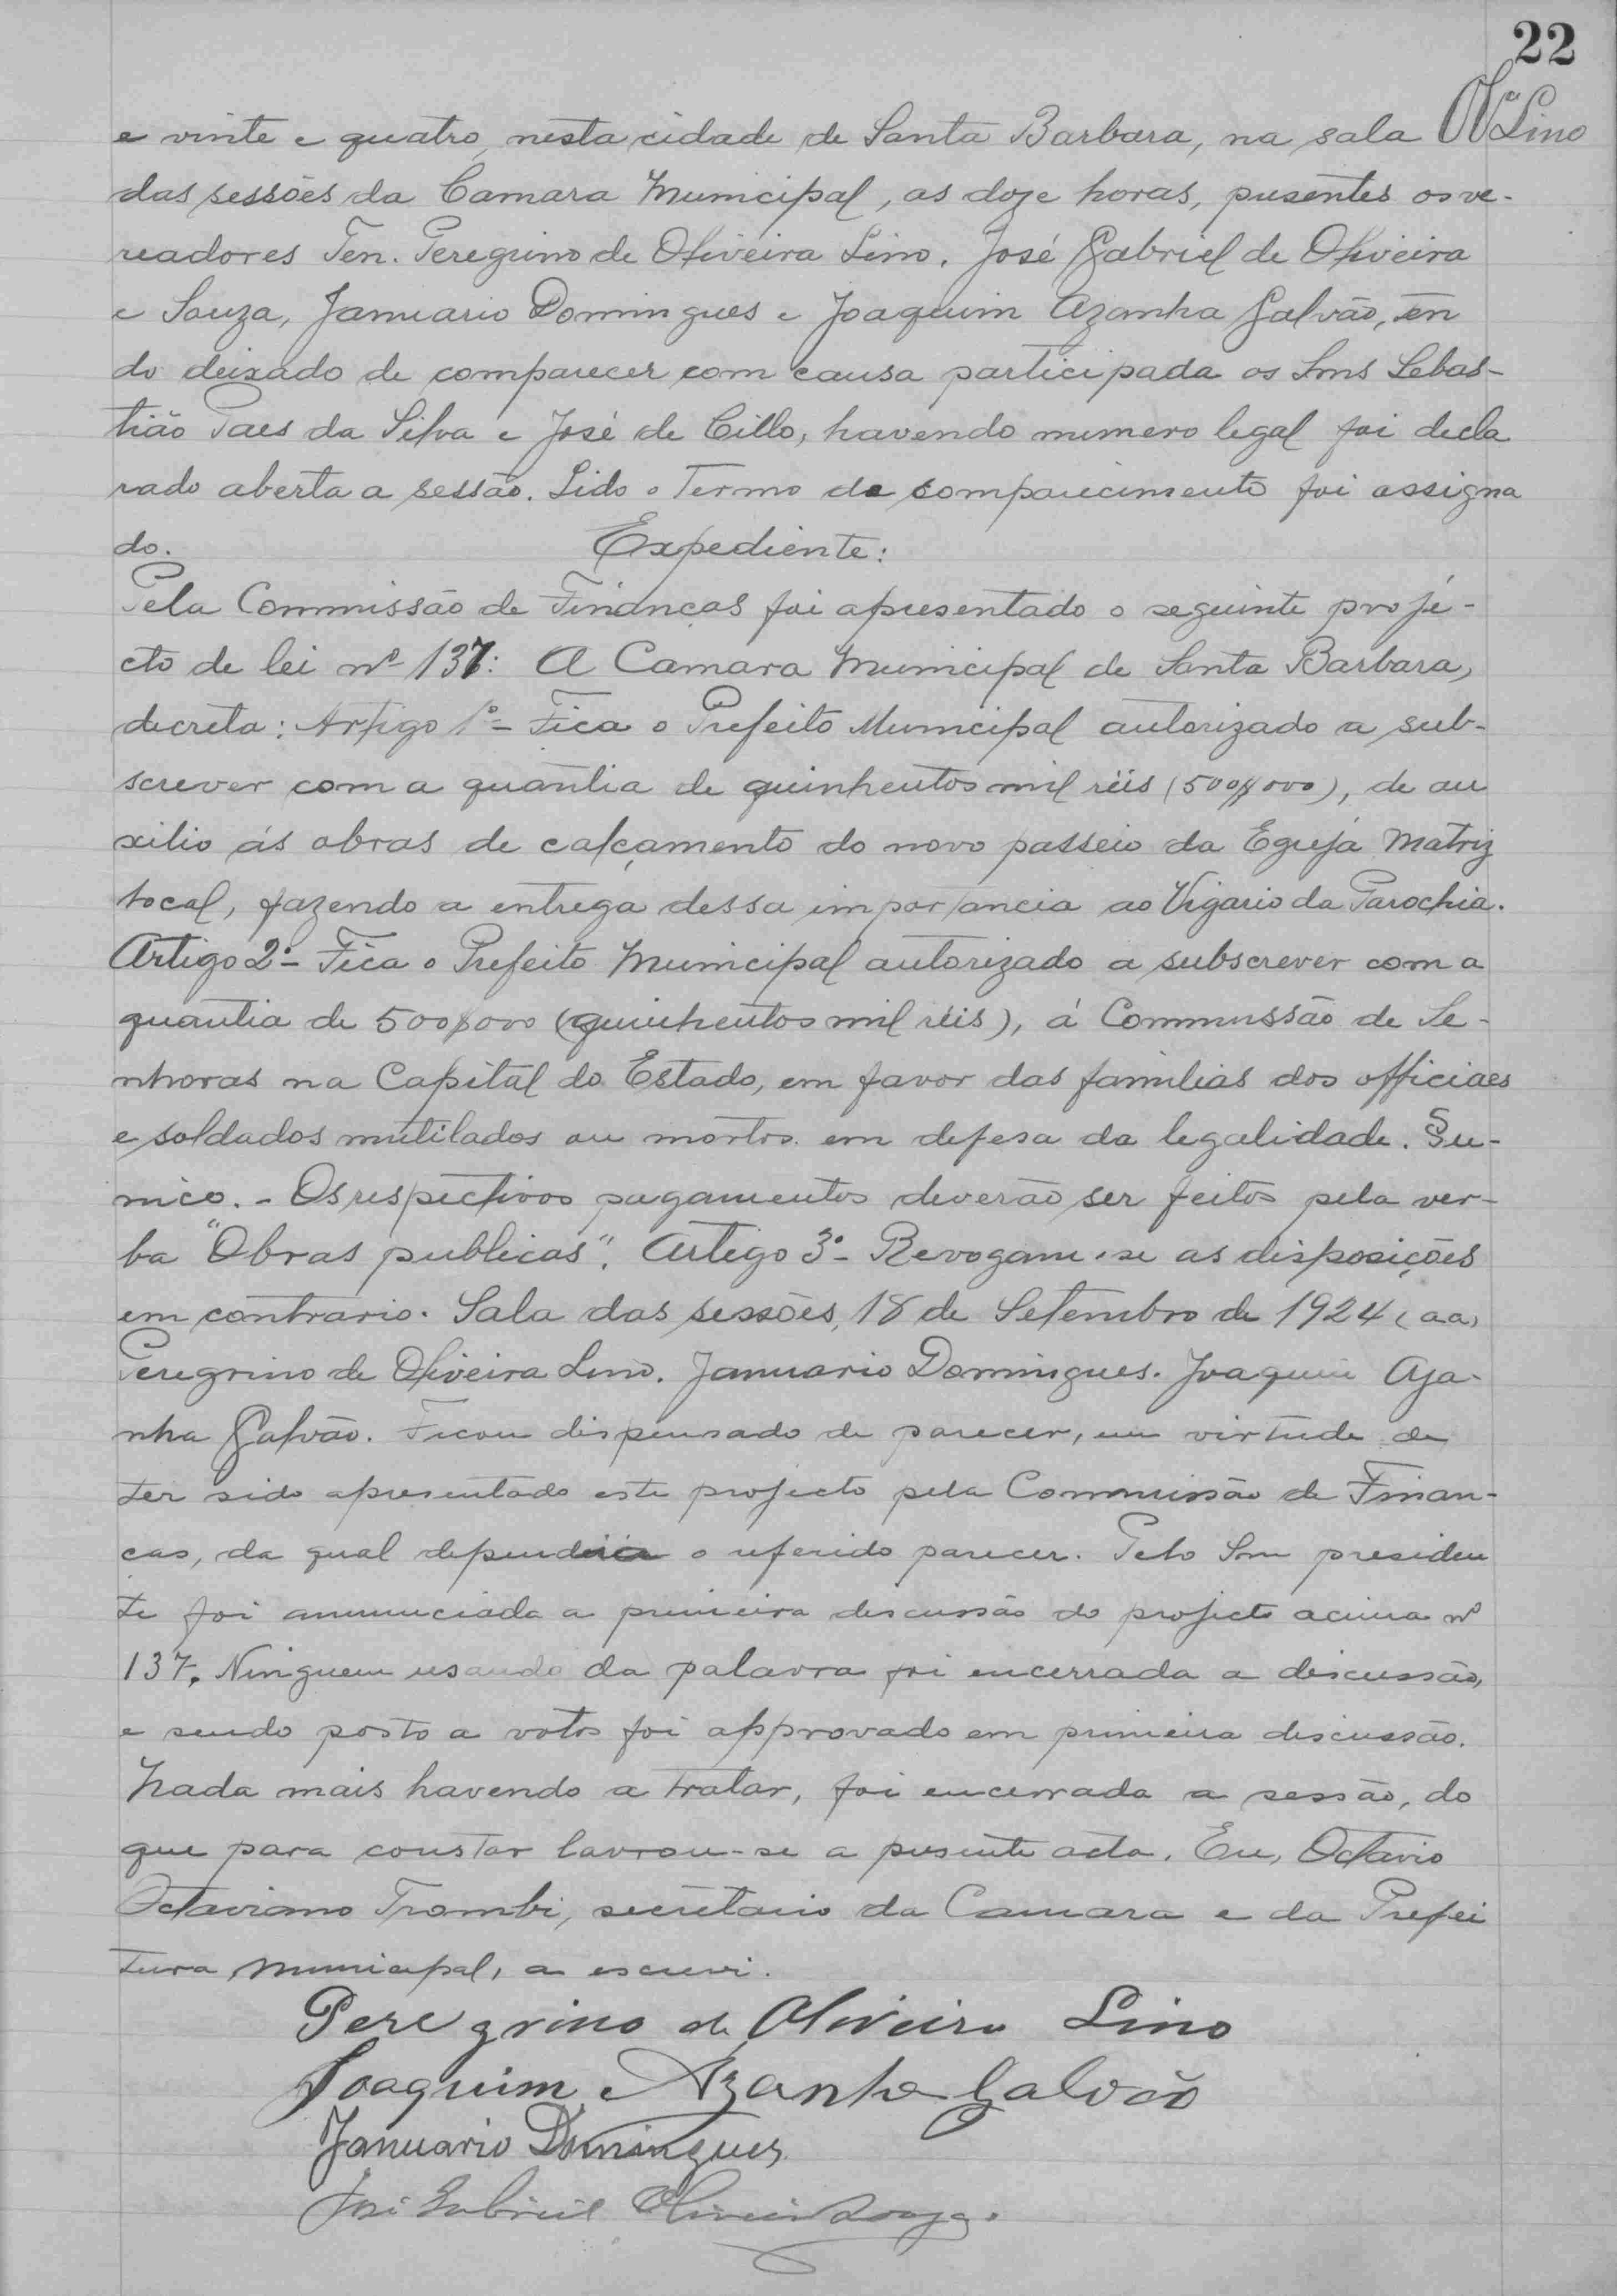 22
OLino
e vinte e quatro, nesta cidade de Santa Barbara, na sala
das sessões da Camara Municipal, as doze horas, presentes os ve-
readores Ten. Peregrino de Oliveira Lino, José Gabriel de Oliveira
e Souza, Januario Domingues e Joaquim Azanha Galvão, ten
do deixado de comparecer com causa participada os Snrs Sebas-
tião Paes da Silva e José de Cillo, havendo numero legal foi decla
rado aberta a sessão. Lido o Termo de comparecimento foi assigna
do. Expediente:
Pela Commissão de Finanças foi apresentado o seguinte projé-
cto de lei nº 137: A Camara Municipal de Santa Barbara,
decreta: Artigo 1º - Fica o Prefeito Municipal autorizado a sub-
screver com a quantia de quinhentos mil réis (500$000), de au
xilio ás obras de calçamento do novo passeio da Egreja Matriz
local, fazendo a entrega dessa importancia ao Vigario da Parochia.
Artigo 2º - Fica o Prefeito Municipal autorizado a subscrever com a
quantia de 500$000 (quinhentos mil réis), á Commissão de Se-
nhoras na Capital do Estado, em favor das familias dos officiaes
e soldados mutilados ou mortos em defesa da legalidade. § u-
nico. - Os respectivos pagamentos deverão ser feitos pela ver-
ba "Obras publicas". Artigo 3º - Revogam-se as disposições
em contrario. Sala das sessões, 18 de Setembro de 1924 (aa)
Peregrino de Oliveira Lino. Januario Domingues. Joaquim Aza-
nha Galvão. Ficou dispensado de parecer, em virtude de
ter sido apresentado este projecto pela Commissão de Finan-
ças, da qual dependeria o referido parecer. Pelo Snr presiden
te foi annunciada a primeira discussão do projecto acima nº
137. Ninguem usando da palavra foi encerrada a discussão,
e sendo posto a votos foi approvado em primeira discussão.
Nada mais havendo a tratar, foi encerrada a sessão, do
que para constar lavrou-se a presente acta. Eu, Octavio
Octaviano Trombi, secretario da Camara e da Prefei
tura Municipal, a escrevi.
Peregrino de Oliveira Lino
Joaquim Azanha Galvão
Januario Domingues
José Gabriel Oliveira Souza.